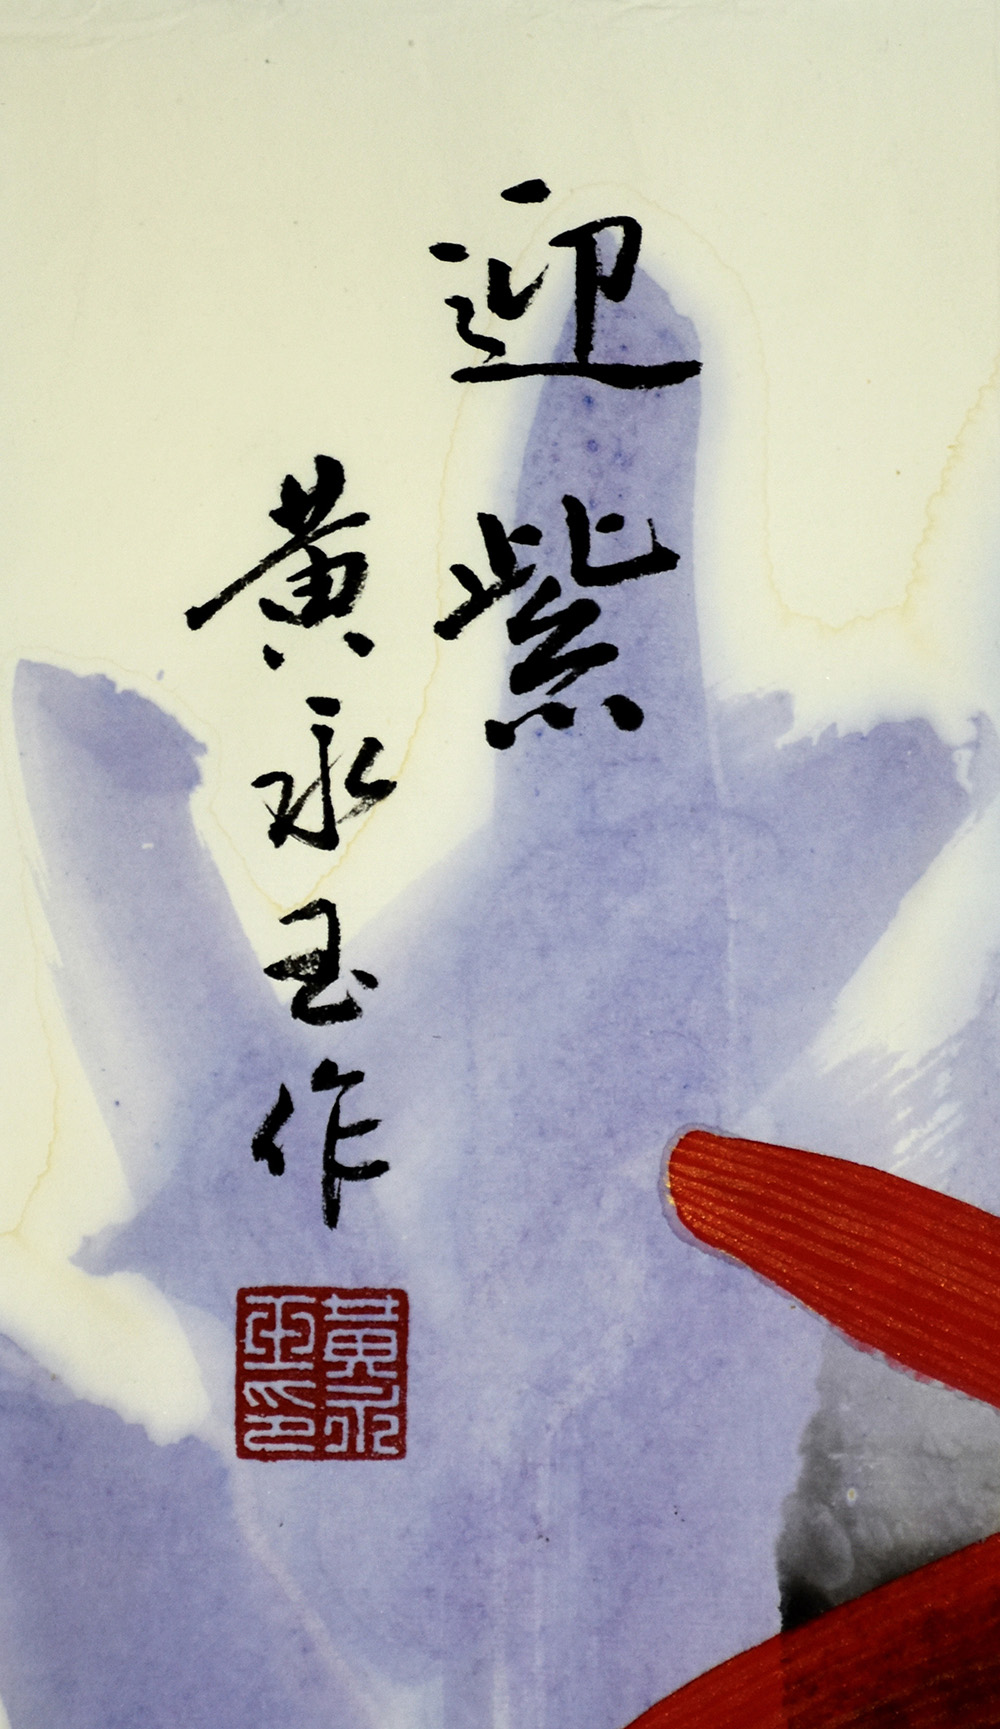 迎紫
黄永玉作
黄永玉印